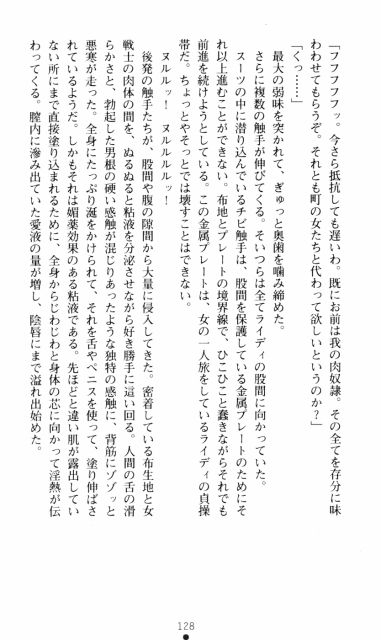 「フフフフッ。今さら抵抗しても遅いわ。既にお前は我の肉奴隷。その全てを存分に味
わわせてもらうぞ。それとも町の女たちと代わって欲しいというのか?」
「くっ……」
最大の弱味を突かれて、ぎゅっと奥歯を噛み締めた。
さらに複数の触手が伸びてくる。そいつらは全てライディの股間に向かっていた。
スーツの中に潜り込んでいるチビ触手は、股間を保護している金属プレートのためにそ
れ以上進むことができない。布地とプレートの境界線で、ひこひこと蠢きながらそれでも
前進を続けようとしている。この金属プレートは、女の一人旅をしているライディの貞操
帯だ。ちょっとやそっとでは壊すことはできない。
ヌルルッ! ヌルルルッ!
後発の触手たちが、股間や腹の隙間から大量に侵入してきた。密着している布生地と女
戦士の肉体の間を、ぬんぬると粘液を分泌させながら好き勝手に這い回る。人間の舌の滑
らかさと、勃起した男根の硬い感触が混じりあったような独特の感触に、背筋にゾゾッと
悪寒が走った。全身にたっぷり涎をかけられて、それを舌やペニスを使って、塗り伸ばさ
れているようだ。しかもそれは媚薬効果のある粘液である。先ほどと違い肌が露出してい
ない所にまで直接塗り込まれるために、全身からじわじわと身体の芯に向かって淫熱が伝
わってくる。膣内に滲み出ていた愛液の量が増し、陰唇にまで溢れ出始めた。
128